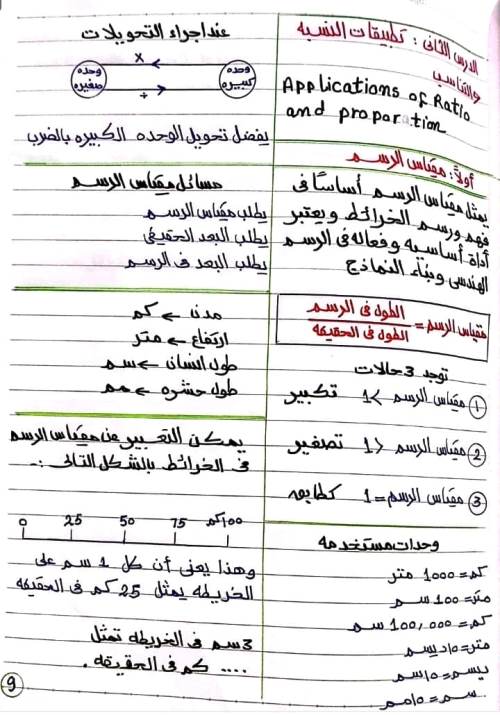 الدرس الثانى : تطبيقات النسبه
والتناسب
Applications of Ratio
and proparation
أولاً: مقياس الرسم
يمثل مقياس الرسم أساسًا فى
فهم ورسم الخرائط ويعتبر
أداة أساسيه وفعاله فى الرسم
الهندسى وبناء النماذج
مقياس الرسم = الطول فى الرسم
الطول فى الحقيقه
توجد 3 حالات
① مقياس الرسم > 1 تكبير
② مقياس الرسم < 1 تصغير
③ مقياس الرسم = 1 تطابق
وحدات مستخدمه
كم = 1000 متر
متر = 100 سم
كم = 100,000 سم
متر = 10 ديسم
ديسم = 10 سم
سم = 10 مم
عند اجراء التحويلات
×
وحده صغيره
وحده كبيره
÷
يفضل تحويل الوحده الكبيره بالضرب
مسائل مقياس الرسم
يطلب مقياس الرسم
يطلب البعد الحقيقى
يطلب البعد فى الرسم
مدن ← كم
ارتفاع ← متر
طول انسان ← سم
طول حشره ← مم
يمكن التعبير عن مقياس الرسم
فى الخرائط بالشكل التالى :-
0 25 50 75 100 كم
وهذا يعنى أن كل 1 سم على
الخريطه يمثل 25 كم فى الحقيقه
3 سم فى الخريطه تمثل
.... كم فى الحقيقه .
9